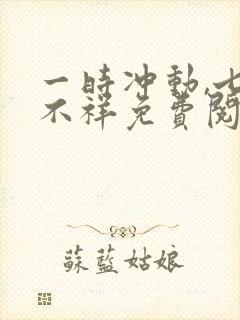 一時冲動,七
不祥免費閱
蘇藍姑娘